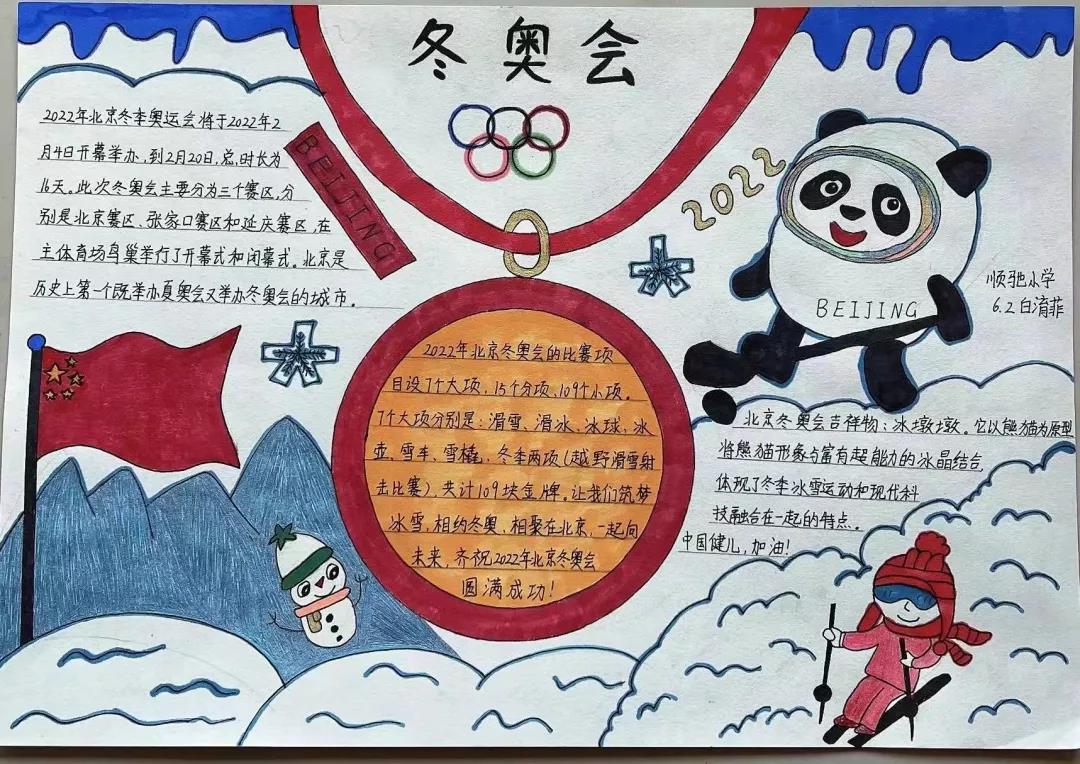 冬奥会
2022年北京冬季奥运会将于2022年2
月4日开幕举办,到2月20日,总,时长为
16天。此次冬奥会主要分为三个赛区,分
别是北京赛区、张家口赛区和延庆赛区,在
主体育场鸟巢举行了开幕式和闭幕式。北京是
历史上第一个既举办夏奥会又举办冬奥会的城市。
BEIJING
2022
BEIJING
顺驰小学
6.2白淯菲
2022年北京冬奥会的比赛项
目设7个大项,15个分项,109个小项。
7个大项分别是:滑雪、滑冰、冰球、冰
壶、雪车、雪橇,冬季两项(越野滑雪射
击比赛),共计109块金牌。让我们筑梦
冰雪,相约冬奥、相聚在北京,一起向
未来,齐祝2022年北京冬奥会
圆满成功!
北京冬奥会吉祥物:冰墩墩。它以熊猫为原型
将熊猫形象与富有超能力的冰晶结合
体现了冬季冰雪运动和现代科
技融合在一起的特点。
中国健儿,加油!